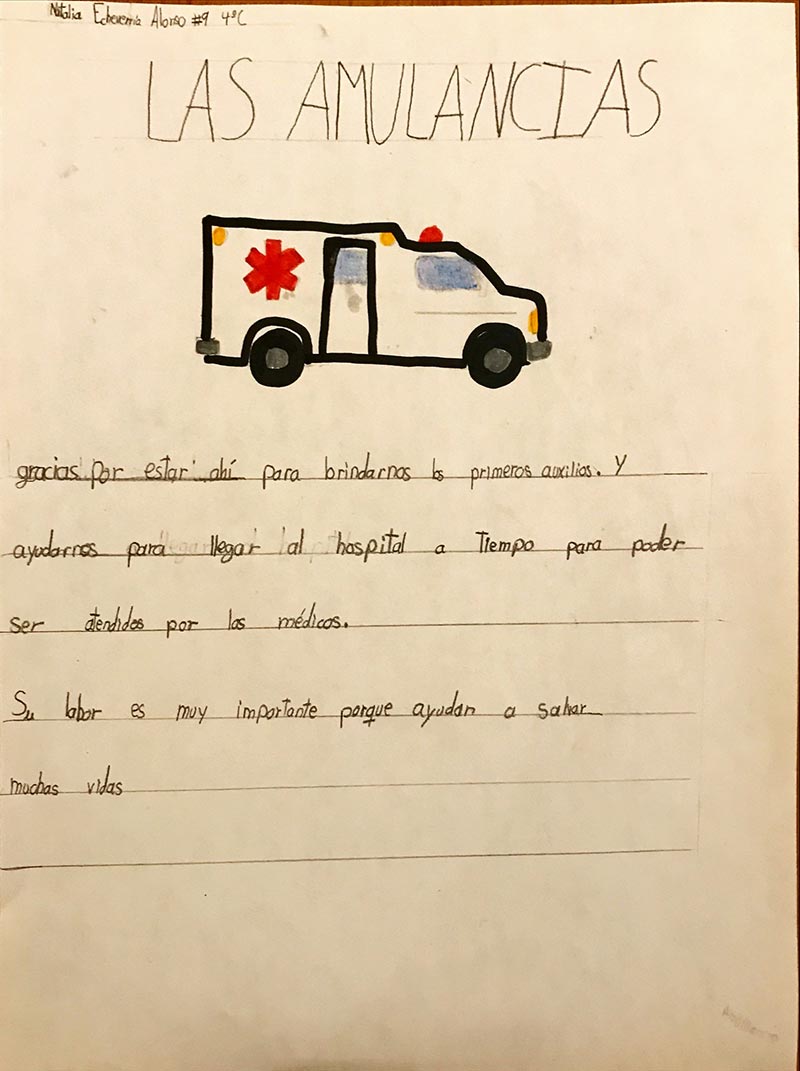 Natalia Echeverría Alonso #9 4°C
LAS AMULANCIAS
gracias por estar ahí para brindarnos los primeros auxilios. Y
ayudarnos para llegar al hospital a Tiempo para poder
ser atendidos por los médicos.
Su labor es muy importante porque ayudan a salvar
muchas vidas